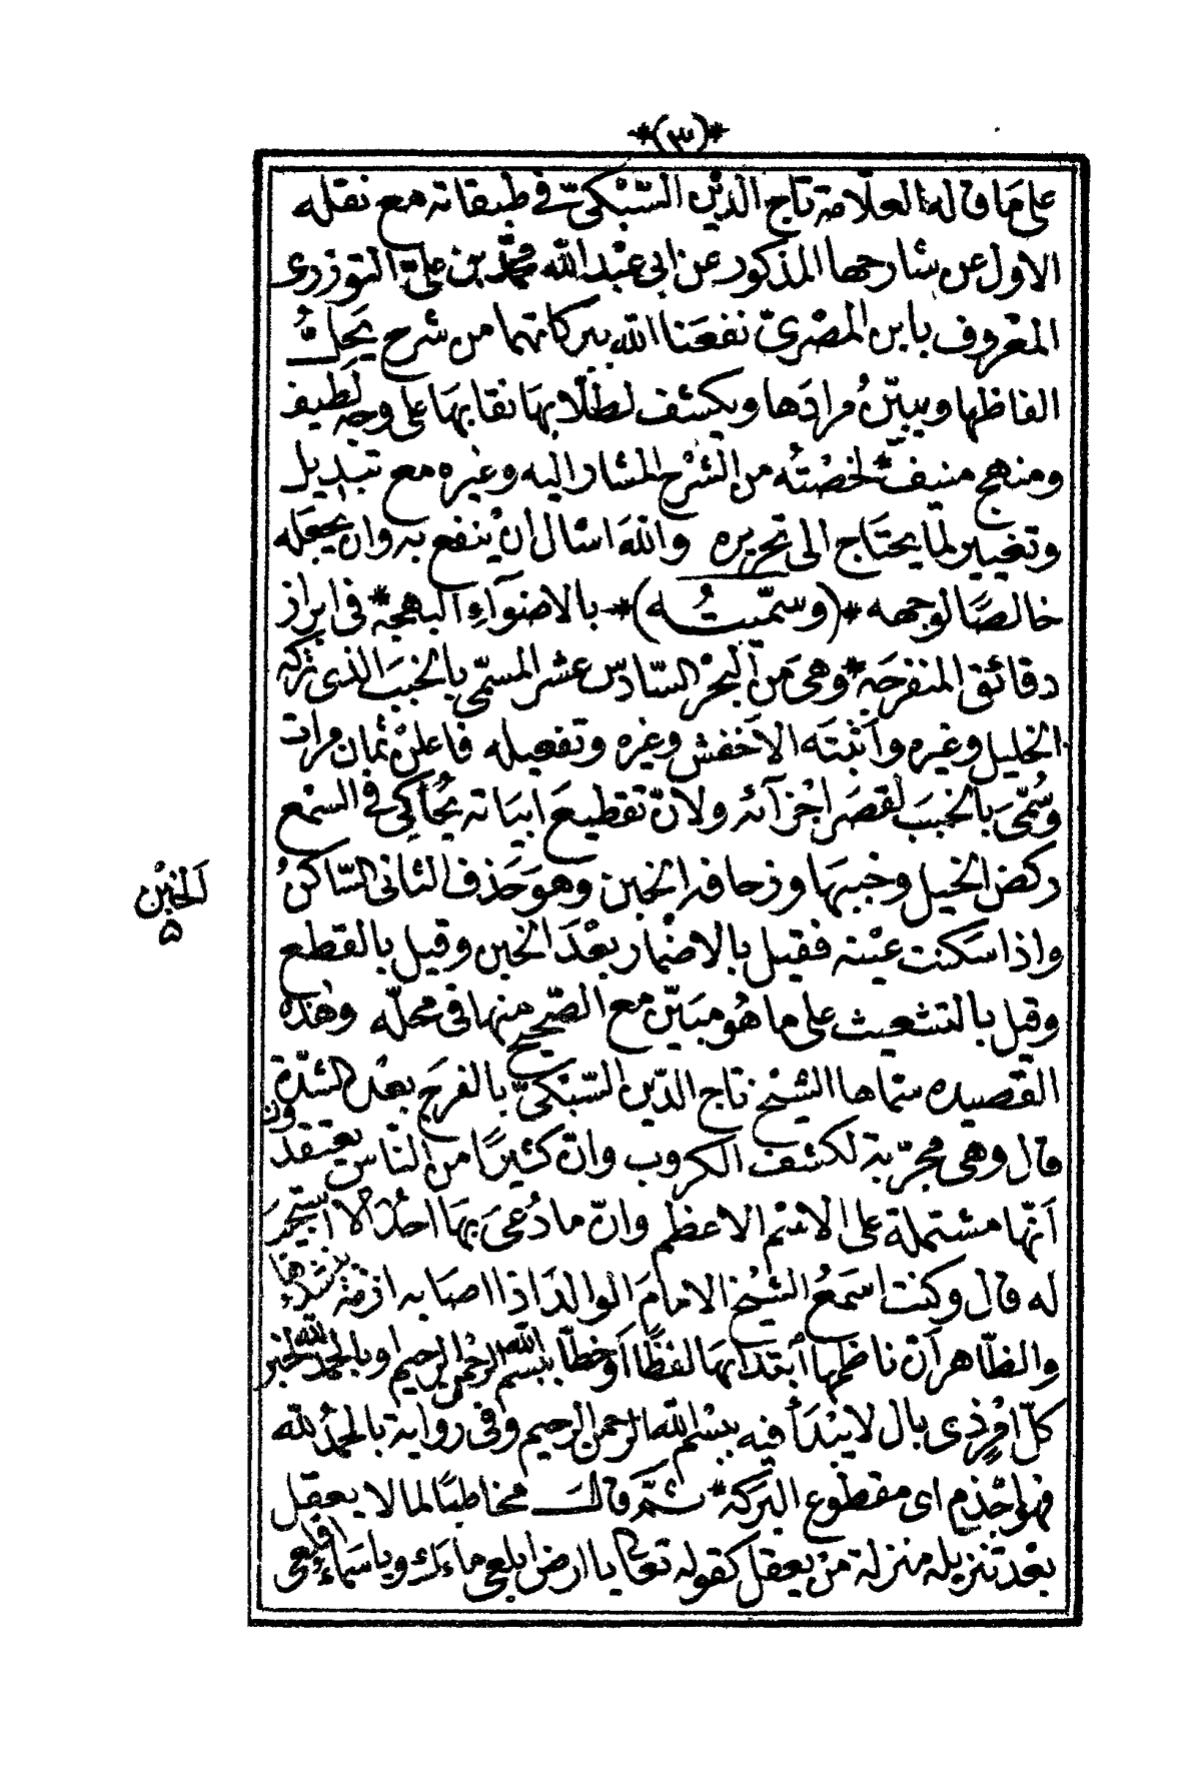 *(٣)*
على مَا قاله العلّامة تاج الدّين السّبْكىّ فى طبقاته مع نقله
الاول عن شارحها المذكور عن ابى عبْد الله محمّد بن علىّ التوزرى
المعْروف بابن المصْرىّ نفعَنا الله ببركاتهما من شرح يَحِلُّ
الفاظها ويبيّن مرادَها ويكشف لطلّابهَا نقابهَا على وجه لطيف
ومنهج منيف * لخصْتُه من الشرْح المشار اليه وغيره مع تبديل
وتغيير لما يحتَاج الى تحريره والله اسْال انْ ينفع به وان يجعَله
خالصًا لوجهه *(وسمّيتُه)* بالاضوَآءِ البهجة * فى ابراز
دقائق المنفرجَة * وهى مَن البحْر السّادس عشر المسمّى بالخبَب الذى تركه
الخليل وغيره واَثبتَه الاَخفش وغيره وتفعيله فاعلنْ ثمان مرات
وسُمّىَ بالخبَب لقصَر اجْزآئه ولانّ تقطيعَ ابيَاته يُحاكى فى السمْع
ركض الخيل وخببهَا وزحافه الخبن وهوَ حَذف الثانى السّاكنُ
اَلخبْن
۵
واذا سَكنت عيْنه فقيل بالاضْمار بعْدَ الخبن وقيل بالقطع
وقيل بالتشعيث على ما هُو مبَيّن مع الصّحيح منها فى محلّه وهٰذه
القصيده سمّاها الشيْخ تاج الدّين السّبْكىّ بالفرجَ بعْد الشدّة
قال وهى مجرّبة لكشف الكروب وانّ كثيرًا من النّاس يعتقدون
اَنّها مشتملة على الاسْم الاعظم وانّ ما دُعىَ بهَا احدٌ الا استجيبَ
له قال وكنت اسمَعُ الشيْخ الامامَ الوالدَ اذا اصَابه ازمة ينشدها
والظّاهر اَنّ ناظمها ابتدَأهَا لفظًا اَوْ خطًّا ببسْم الله الرحمن الرحيم او بالحمْد لله لخبر
كلّ امْرٍ ذى بال لا يبْدَأ فيه ببسْم الله الرحمن الرحيم وفى رواية بالحمْدُ لله
فهوَ اجْذم اى مقطوع البَركة * ثمّ قالَ مخاطبًا لما لا يعقل
بعْد تنزيله منزلة مَنْ يعقل كقوله تعالى يا ارض ابلعى ماءَك ويا سمَاءُ اقلعى